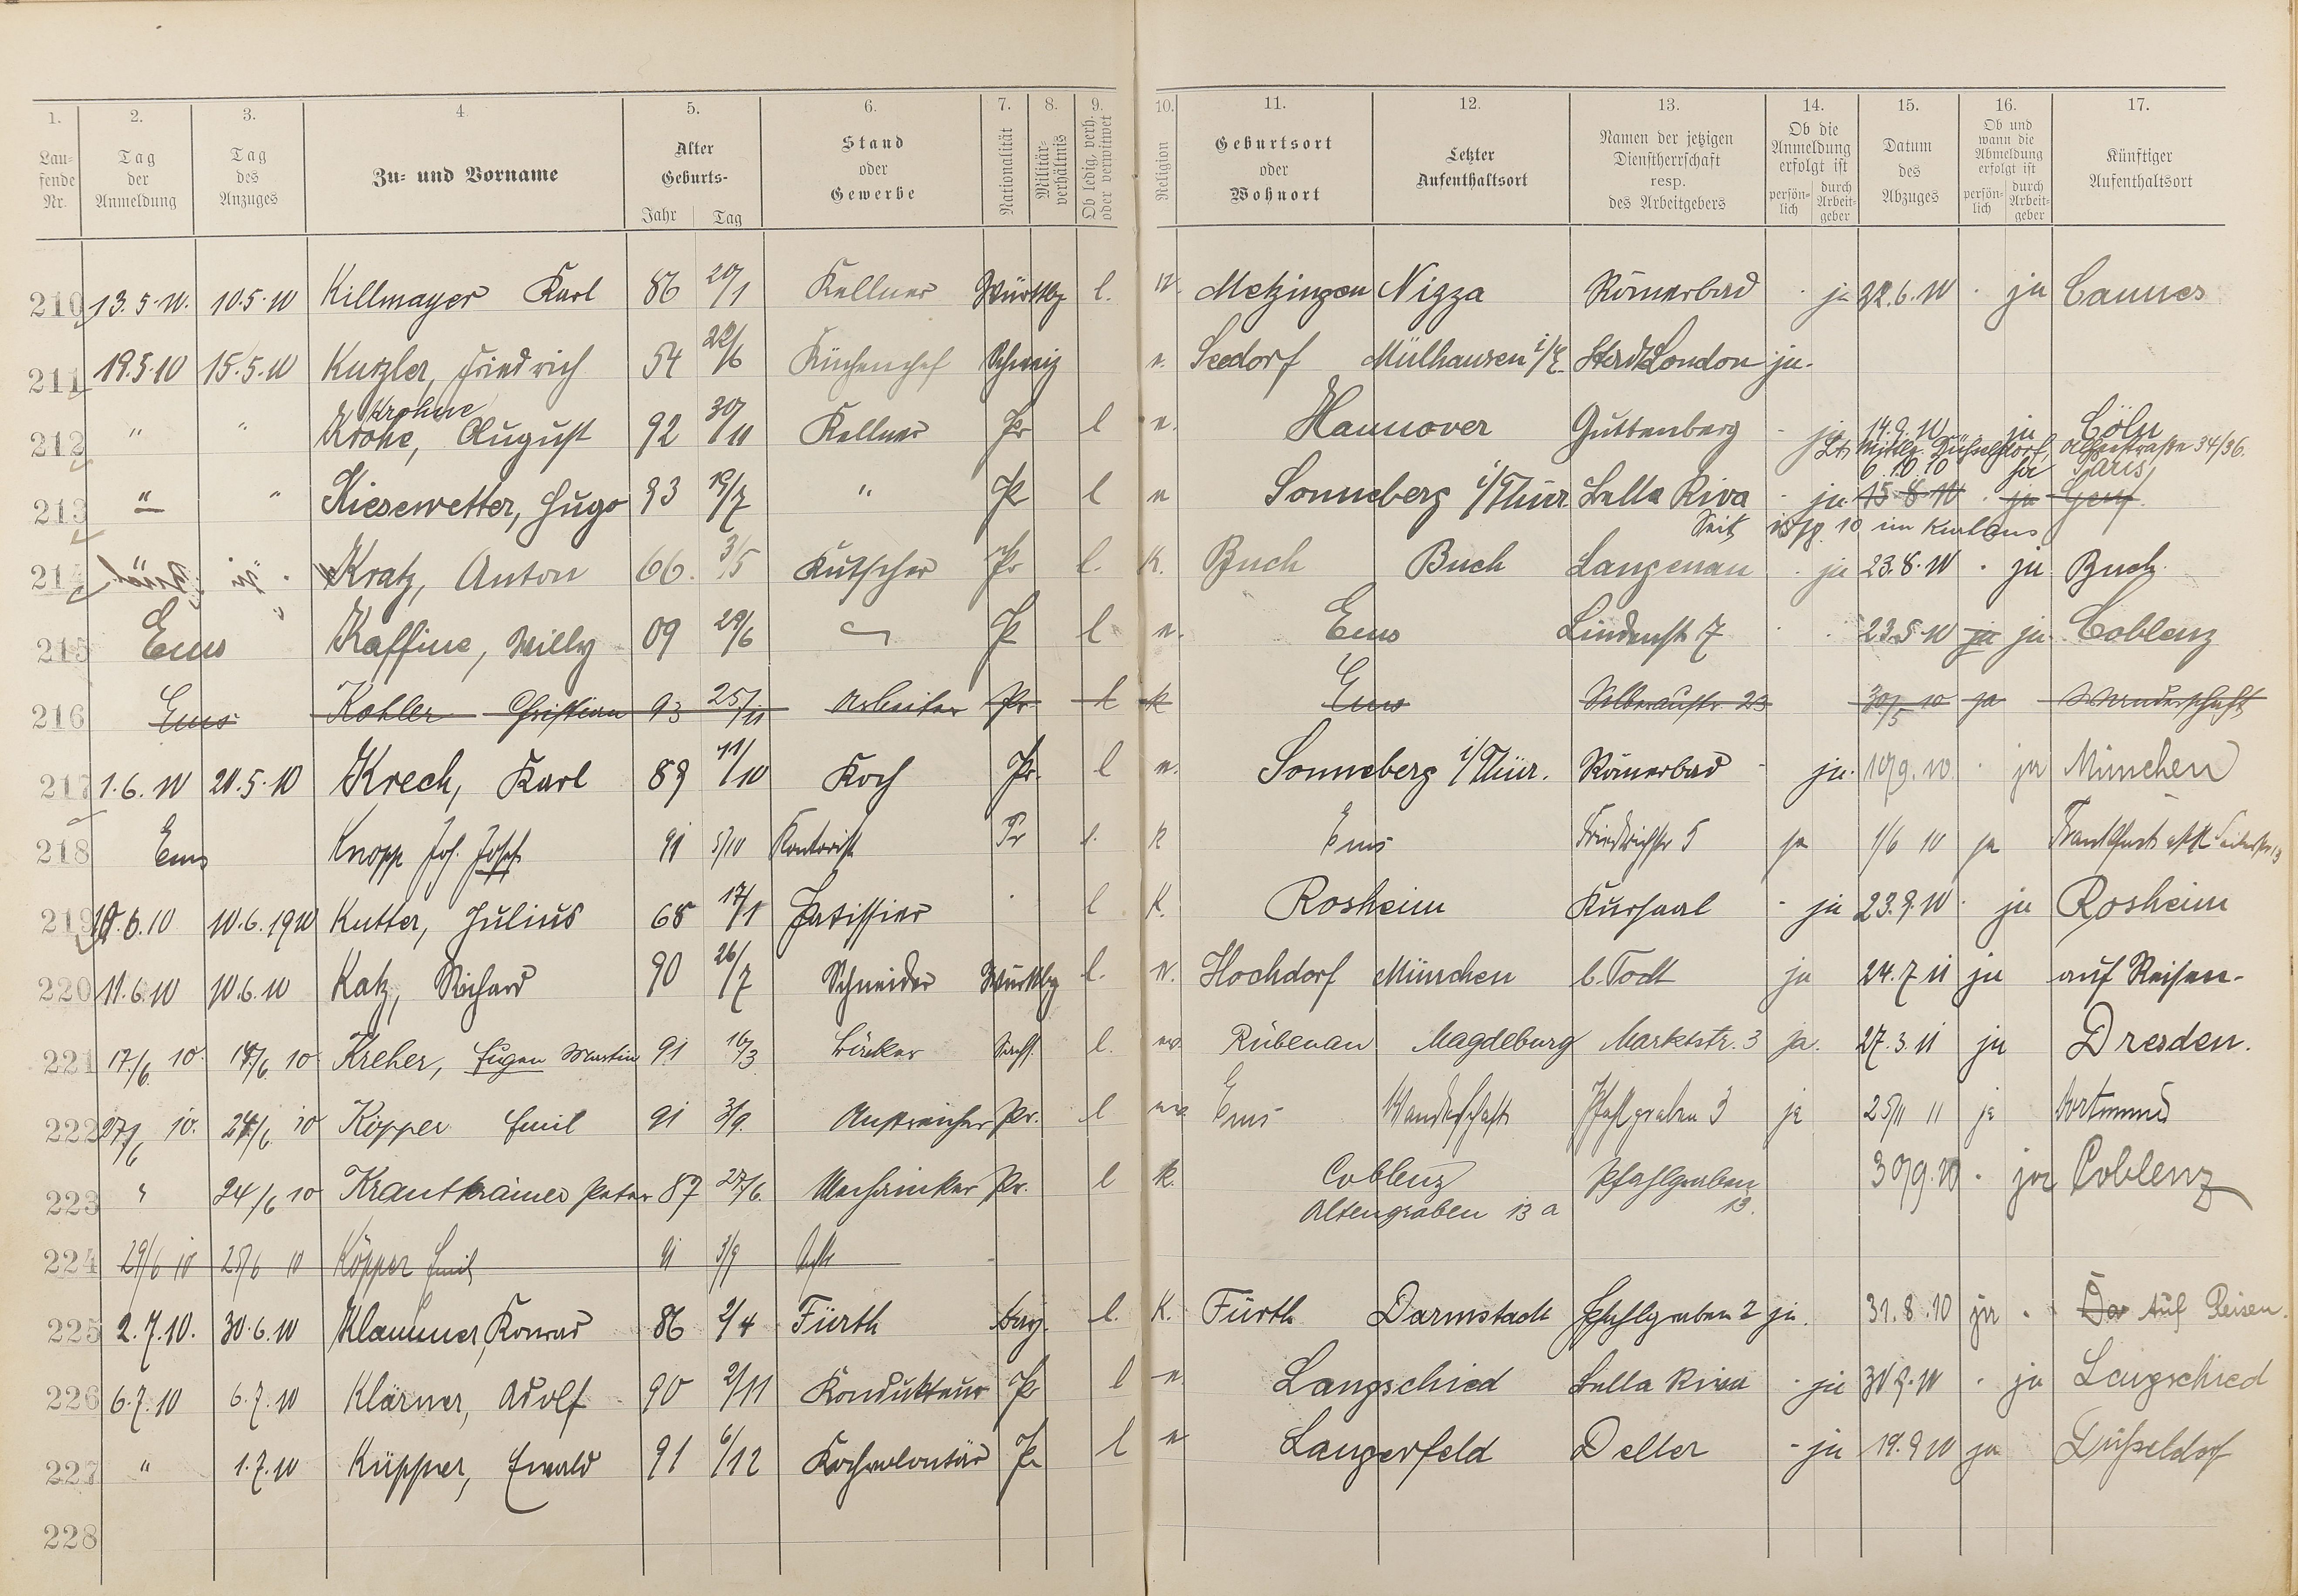 1. 2. 3. 4. 5. 6. 7. 8. 9. 10. 11. 12. 13. 14. 15. 16. 17.
Laufende Nr. Tag der Anmeldung Tag des Anzuges Zu- und Vorname Alter Geburts- Jahr Tag Stand oder Gewerbe Nationalität Militärverhältnis Ob ledig, verh. oder verwitwet Religion Geburtsort oder Wohnort Letzter Aufenthaltsort Namen der jetzigen Dienstherrschaft resp. des Arbeitgebers Ob die Anmeldung erfolgt ist persönlich durch Arbeitgeber Datum des Abzuges Ob und wann die Abmeldung erfolgt ist persönlich durch Arbeitgeber Künftiger Aufenthaltsort
210 13.5.10. 10.5.10 Killmayer Karl 86 20/1 Kellner Württbg l. Metzingen Nizza Römerbad - ja 22.6.10 - ja Cannes
211 19.5.10 15.5.10 Kutzler, Friedrich 54 22/6 Küchenchef Schweiz Seedorf Mülhausen i/E. Stadt London ja.
Krohne
212 " " Krohe, August 92 30/11 Kellner Pr l Hannover Guttenberg - ja 14.9.10 ja Cöln
Düsseldorf, 34/36.
6.10.10 ja Paris
213 " " Kiesewetter, Hugo 93 19/7 " Pr l Sonneberg i/Thür. Bella Riva - ja 15.8.10 - ja Genf
Seit 10 im Kurhaus
214 Kratz, Anton 66. 3/5 Kutscher Pr l. K. Buch Buch Langenau - ja 23.8.10 - ja Buch
215 Ems " Kaffine, Willy 09 29/6 Pr l Ems Lindenst 7 23.5.10 ja ja Coblenz
216 Ems Kohler Christian 93 25/11 Arbeiter Pr l k Ems Silberaustr. 23 30/5 10 ja Wanderschaft
217 1.6.10 20.5.10 Krech, Karl 89 11/10 Koch Pr. l Sonneberg i/Thür. Römerbad - ja. 10/9.10. - ja München
218 Ems Knopp Joh. Josef 91 5/10 Kontorist Pr l. k Ems Friedrichstr 5 ja 1/6 10 ja Frankfurt
219 10.6.10 10.6.1910 Kutter, Julius 68 17/1 Patissier l K. Rosheim Kursaal - ja 23.9.10 - ja Rosheim
220 11.6.10 10.6.10 Katz, Richard 90 26/7 Schneider Württbg l. Hochdorf München b. Todt ja 24.7 11 ja auf Reisen-
221 17./6. 10. 17/6. 10 Kreher, Eugen Martin 91 16/3 Bäcker Sachs. l. ev. Rübenau Magdeburg Marktstr. 3 ja. 27.3.11 ja Dresden.
222 27/6 10. 24/6. 10 Köpper Emil 91 3/9. Anstreicher Pr. l Ems Wanderschaft Pfahlgraben 3 ja 25/11 11 ja Dortmund
223 " 24/6 10 Krautkrämer Peter 87 27/6. Mechaniker Pr. l k. Coblenz Pfahlgraben 30/9.10 - ja Coblenz
Altengraben 13 a 13.
224 29/6 10 25/6 10 Köpper Emil 91 3/9
225 2.7.10. 30.6.10 Klammer, Konrad 86 2/4 Fürth Bay. l. K. Fürth Darmstadt Pfahlgraben 2 ja. 31.8.10 ja - Da Auf Reisen.
226 6.7.10 6.7.10 Klärner, Adolf 90 2/11 Kondukteur Pr l Langschied Bella Riva - ja 30.9.10 - ja Langschied
227 " 1.7.10 Küpper, Ewald 91 6/12 Kochvolontär Pr l Langerfeld Deller - ja 19.9 10 ja Düsseldorf
228